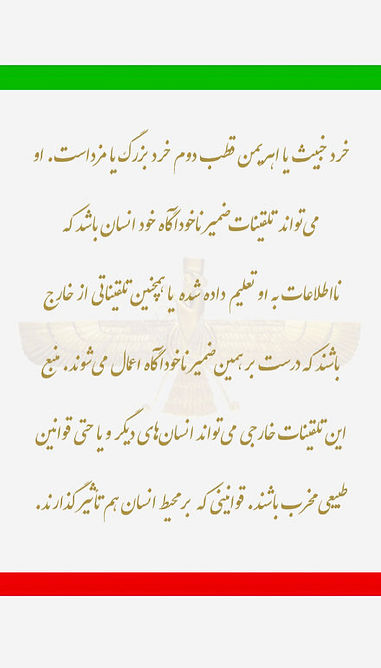 خرد خبیث یا اهریمن قطب دوم خرد بزرگ یا مزداست. او
می‌تواند تلقینات ضمیر ناخودآگاه خود انسان باشد که
نااطلاعات به او تعلیم داده شده یا همچنین تلقیناتی از خارج
باشند که درست بر همین ضمیر ناخودآگاه اعمال می‌شوند. منبع
این تلقینات خارجی می‌تواند انسان‌های دیگر و یا حتی قوانین
طبیعی مخرب باشند. قوانینی که بر محیط انسان هم تاثیر گذارند.